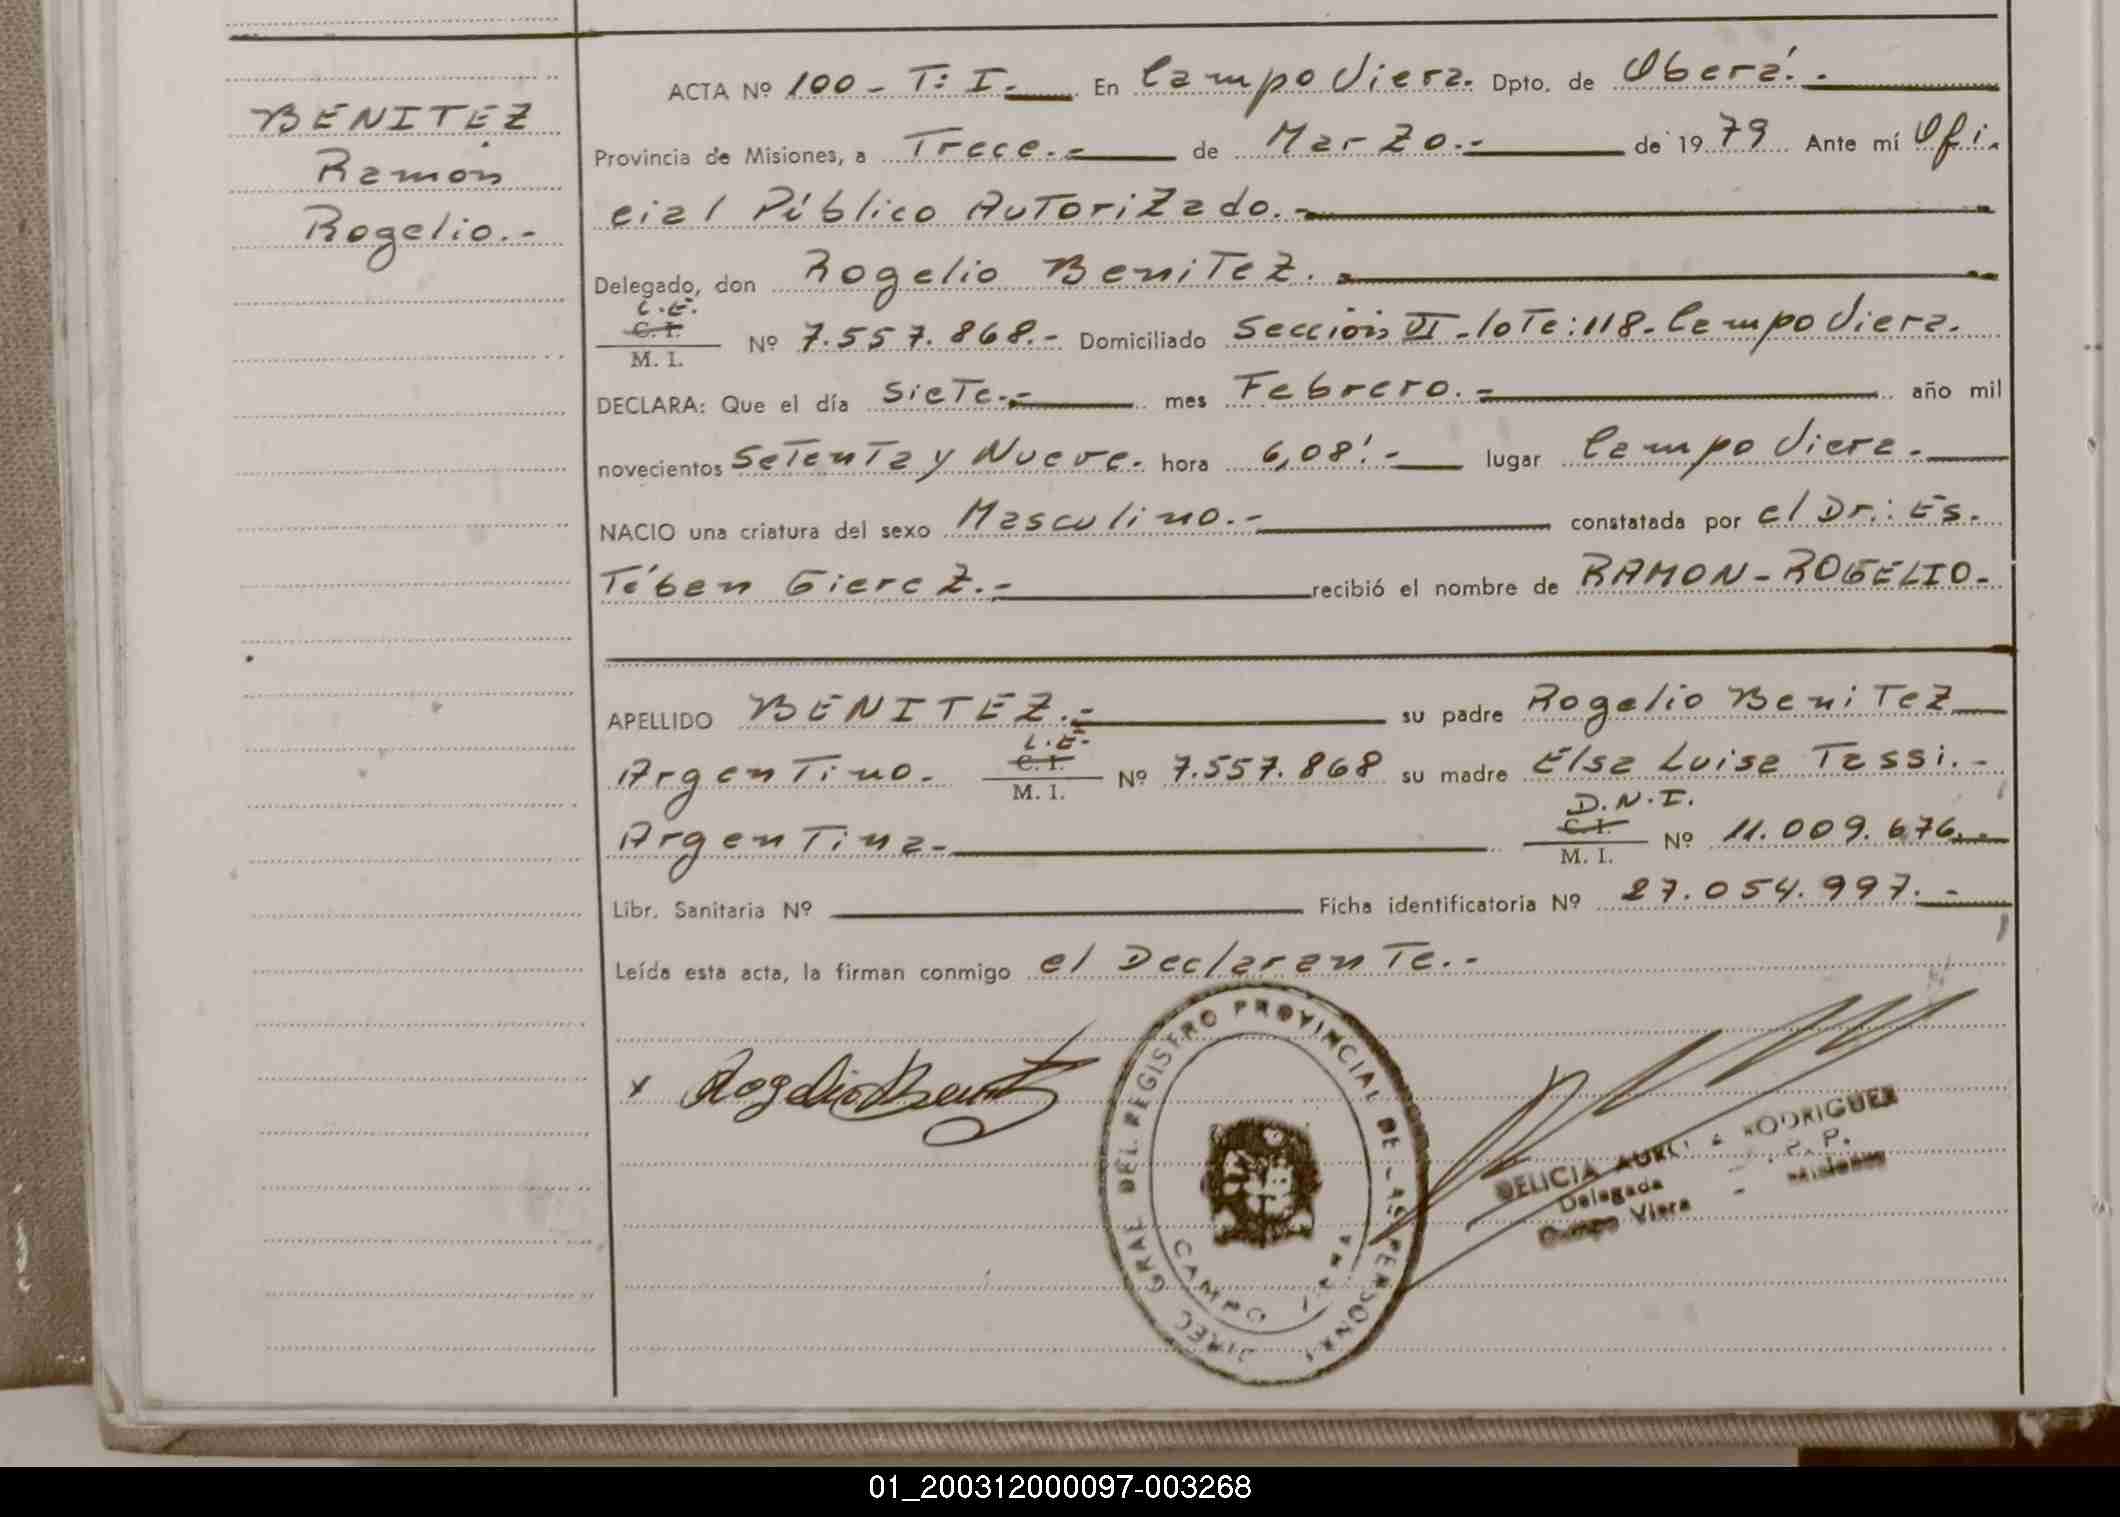 BENITEZ
Ramón
Rogelio.-
ACTA Nº 100 - T: I.- En Campo Viera. Dpto. de Oberá.-
Provincia de Misiones, a Trece.- de Marzo.- de 1979 Ante mí Ofi-
cial Público Autorizado.-
Delegado, don Rogelio Benitez.-
L.E.
C. I.
M. I.
Nº 7.557.868.- Domiciliado Sección VI - lote: 118 - Campo Viera.
DECLARA: Que el día Siete.- mes Febrero.- año mil
novecientos Setenta y Nueve. hora 6,08'.- lugar Campo Viera.-
NACIO una criatura del sexo Masculino.- constatada por el Dr.: Es-
tében Gierez.- recibió el nombre de RAMON - ROGELIO -
APELLIDO BENITEZ.- su padre Rogelio Benitez
L.E.
Argentino. C. I. Nº 7.557.868 su madre Elsa Luisa Tassi.-
M. I.
D.N.I.
Argentina.- C. I. Nº 11.009.676.-
M. I.
Libr. Sanitaria Nº Ficha identificatoria Nº 27.054.997.-
Leída esta acta, la firman conmigo el Declarante.-
x Rogelio Benitez
DIREC GRAL DEL REGISTRO PROVINCIAL DE LAS PERSONAS
CAMPO VIERA
DELICIA RODRIGUEZ
Delegada
Campo Viera - Misiones
01_200312000097-003268